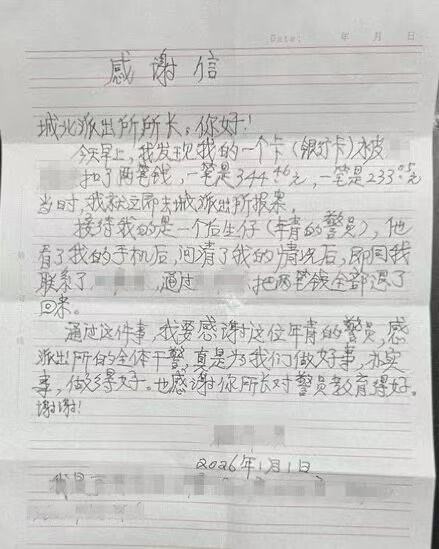 Date: 年 月 日
感谢信
城北派出所所长，你好！
今天早上，我发现我的一个卡（银行卡）被
扣了两笔钱，一笔是344.46元，一笔是233.05元
当时，我就立即去城派出所报案。
接待我的是一个后生仔（年青的警员），他
看了我的手机后，问清了我的情况后，即同我
联系了，通过 把两笔钱全部退了
回来。
通过这件事，我要感谢这位年青的警员，感
派出所你的全体干警，真是为我们做好事，办实
事，做得好。也感谢你所长对警员教育得好。
谢谢！
2026年1月1日
我是